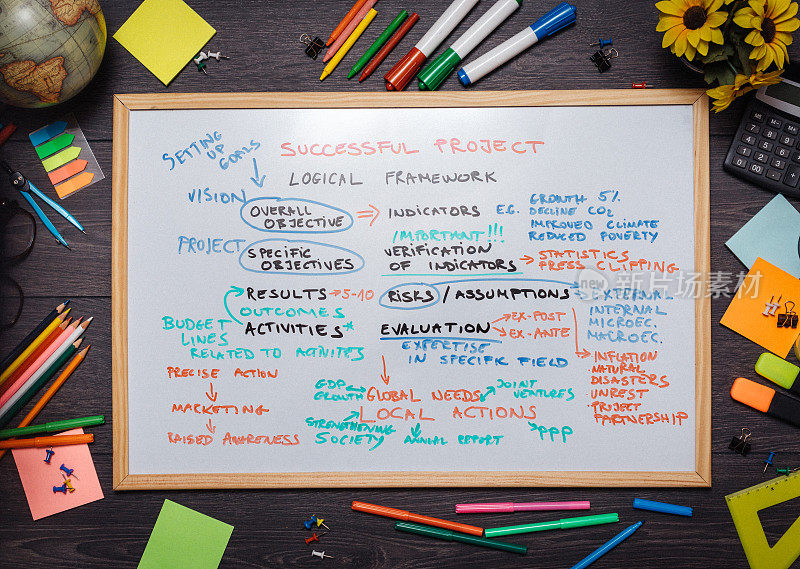 SETTING UP GOALS
SUCCESSFUL PROJECT
LOGICAL FRAMEWORK
VISION
OVERALL OBJECTIVE
INDICATORS
E.G.
GROWTH 5%
DECLINE CO2
IMPROVED CLIMATE
REDUCED POVERTY
IMPORTANT!!!
PROJECT
SPECIFIC OBJECTIVES
VERIFICATION
OF INDICATORS
STATISTICS
PRESS CLIPPING
RESULTS
5-10
RISKS / ASSUMPTIONS
EXTERNAL
INTERNAL
MICROEC.
MACROEC.
OUTCOMES
ACTIVITIES*
EVALUATION
EX-POST
EX-ANTE
BUDGET
LINES
RELATED TO ACTIVITES
EXPERTISE
IN SPECIFIC FIELD
INFLATION
NATURAL
DISASTERS
UNREST
PROJECT
PARTNERSHIP
PRECISE ACTION
MARKETING
RAISED AWARENESS
GDP
GROWTH
GLOBAL NEEDS
JOINT
VENTURES
LOCAL ACTIONS
STRENGTHENING
SOCIETY
ANNUAL REPORT
PPP
新图网